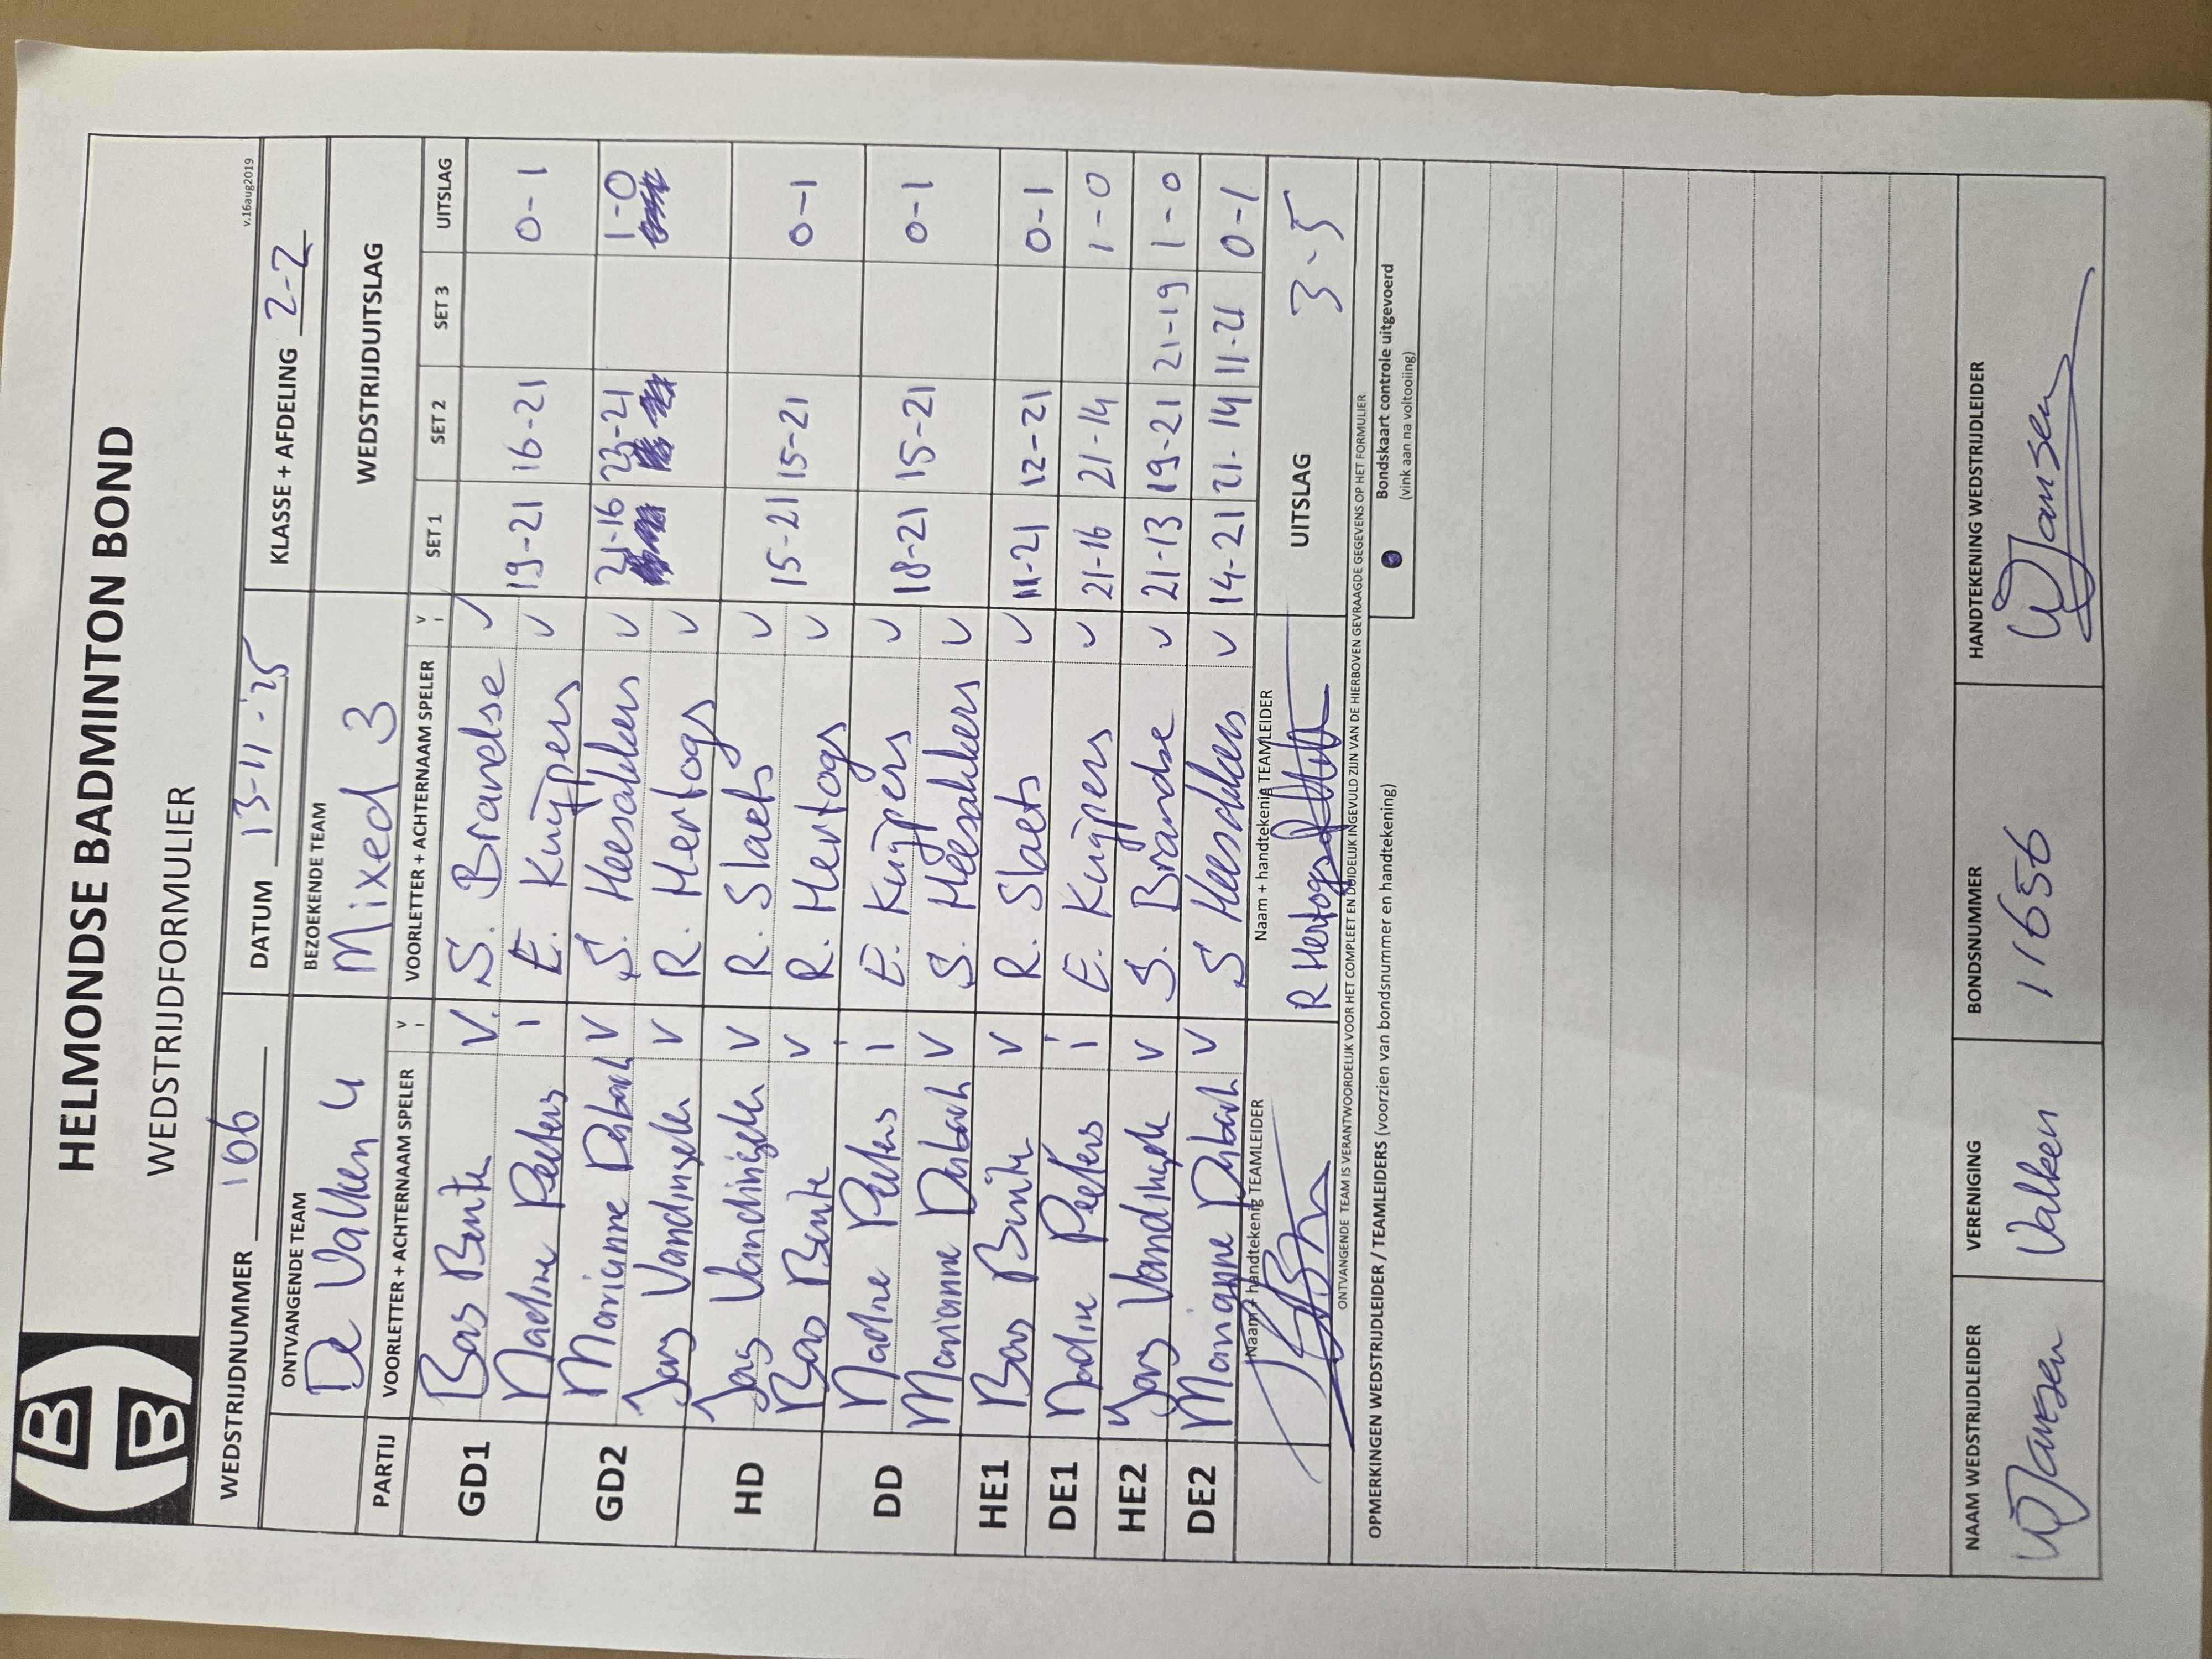 HB
B
HELMONDSE BADMINTON BOND
WEDSTRIJDFORMULIER
v.16aug2019
WEDSTRIJDNUMMER 166 DATUM 13-11-'25 KLASSE + AFDELING 2-2
ONTVANGENDE TEAM BEZOEKENDE TEAM WEDSTRIJDUITSLAG
De Valken 4 Mixed 3
PARTIJ VOORLETTER + ACHTERNAAM SPELER V I VOORLETTER + ACHTERNAAM SPELER V I SET 1 SET 2 SET 3 UITSLAG
GD1 Bas Bente V. S. Brandse V
Nadine Peeters i E. Kuijpers V 19-21 16-21 0-1
GD2 Marianne V S. Heesakkers V 21-16 23-21 1-0
Jary V R. Hertogs V
HD Jary V R. Slaets V
Bas Bente V R. Hertogs V 15-21 15-21 0-1
DD Nadine Peeters i E. Kuijpers V
Marianne V S. Heesakkers V 18-21 15-21 0-1
HE1 Bas Bente V R. Slaets V 11-21 12-21 0-1
DE1 Nadine Peeters i E. Kuijpers V 21-16 21-14 1-0
HE2 Jary V S. Brandse V 21-13 19-21 21-19 1-0
DE2 Marianne V S Heesakkers V 14-21 21-14 11-21 0-1
Naam + handtekenig TEAMLEIDER Naam + handtekenig TEAMLEIDER UITSLAG 3-5
R Hertogs
ONTVANGENDE TEAM IS VERANTWOORDELIJK VOOR HET COMPLEET EN DUIDELIJK INGEVULD ZIJN VAN DE HIERBOVEN GEVRAAGDE GEGEVENS OP HET FORMULIER
OPMERKINGEN WEDSTRIJDLEIDER / TEAMLEIDERS (voorzien van bondsnummer en handtekening)
Bondskaart controle uitgevoerd
(vink aan na voltooiing)
NAAM WEDSTRIJDLEIDER VERENIGING BONDSNUMMER HANDTEKENING WEDSTRIJDLEIDER
W Jansen Valken 11656 W Jansen